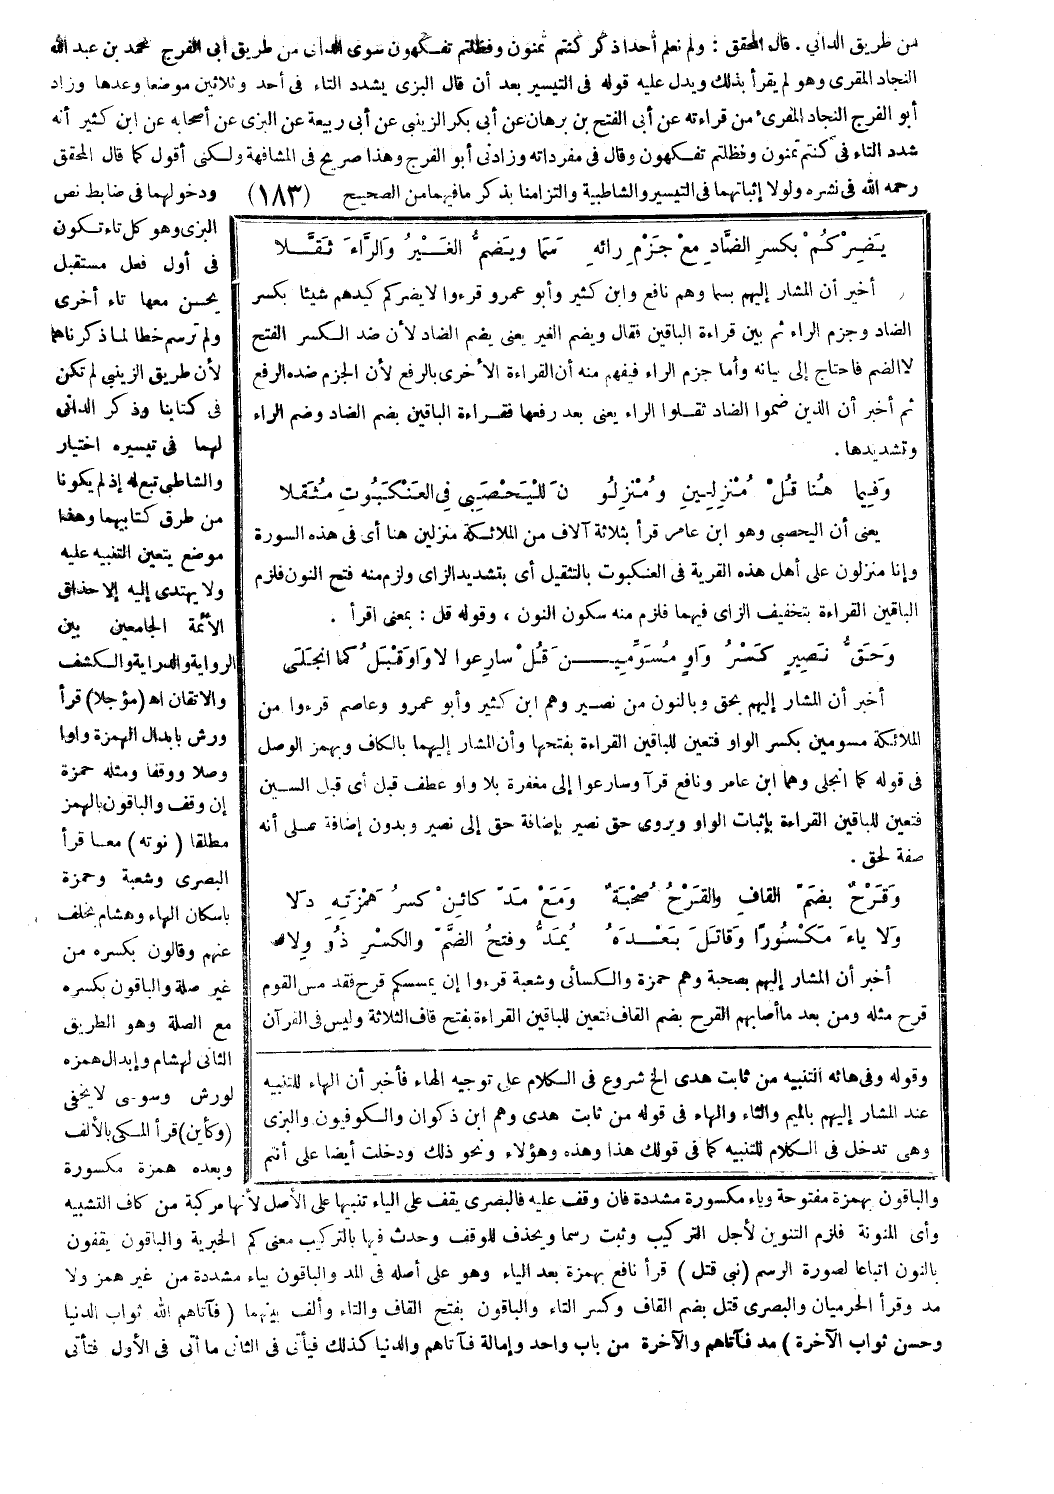 من طريق الداني . قال المحقق : ولم نعلم أحدا ذكر كنتم تمنون وفظلتم تفكهون سوى الدانى من طريق أبى الفرج محمد بن عبد الله
النجاد المقرى وهو لم يقرأ بذلك ويدل عليه قوله فى التيسير بعد أن قال البزى يشدد التاء فى أحد وثلاثين موضعا وعدها وزاد
أبو الفرج النجاد المقرىء من قراءته عن أبى الفتح بن برهان عن أبى بكر الزينبى عن أبى ربيعة عن البزى عن أصحابه عن ابن كثير أنه
شدد التاء فى كنتم تمنون وفظلتم تفكهون وقال فى مفرداته وزادنى أبو الفرج وهذا صريح فى المشافهة ولكنى أقول كما قال المحقق
رحمه الله فى نشره ولولا إثباتهما فى التيسير والشاطبية والتزامنا بذكر ما فيهما من الصحيح (١٨٣) ودخولهما فى ضابط نص
البزى وهو كل تاء تكون
فى أول فعل مستقبل
يحسن معها تاء أخرى
ولم ترسم خطا لما ذكرناهما
لأن طريق الزينبي لم تكن
فى كتابنا وذكر الدانى
لهما فى تيسيره اختيار
والشاطبى تبع له إذ لم يكونا
من طرق كتابيهما وهذا
موضع يتعين التنبيه عليه
ولا يهتدى إليه إلا حذاق
الأئمة الجامعين بين
الرواية والدراية والكشف
والاتقان اه (مؤجلا) قرأ
ورش بابدال الهمزة واوا
وصلا ووقفا ومثله حمزة
إن وقف والباقون بالهمز
مطلقا ( نوته ) معا قرأ
البصرى وشعبة وحمزة
باسكان الهاء وهشام بخلف
عنهم وقالون بكسره من
غير صلة والباقون بكسره
مع الصلة وهو الطريق
الثانى لهشام وإبدال همزه
لورش وسوسى لا يخفى
(وكأين) قرأ المكى بالألف
وبعده همزة مكسورة
يَضِرْكُمْ بِكسرِ الضَّادِ مَعْ جَزْمِ رائِهِ سَمَا ويَضمُّ الغَيْرُ وَالرَّاءَ ثَقَّلَا
أخبر أن المشار إليهم بسما وهم نافع وابن كثير وأبو عمرو قرءوا لا يضركم كيدهم شيئا بكسر
الضاد وجزم الراء ثم بين قراءة الباقين فقال ويضم الغير يعنى بضم الضاد لأن ضد الكسر الفتح
لا الضم فاحتاج إلى بيانه وأما جزم الراء فيفهم منه أن القراءة الأخرى بالرفع لأن الجزم ضده الرفع
ثم أخبر أن الذين ضموا الضاد ثقلوا الراء يعنى بعد رفعها فقراءة الباقين بضم الضاد وضم الراء
وتشديدها .
وَفِيما هُنا قُلْ مُنْزِلِينَ وَمُنْزِلُو نَ لليَحْصَبِى فِى العَنْكَبُوتِ مُثَقَّلا
يعنى أن اليحصبى وهو ابن عامر قرأ بثلاثة آلاف من الملائكة منزلين هنا أى فى هذه السورة
وإنا منزلون على أهل هذه القرية فى العنكبوت بالتثقيل أى بتشديد الزاى ولزم منه فتح النون فلزم
الباقين القراءة بتخفيف الزاى فيهما فلزم منه سكون النون ، وقوله قل : بمعنى اقرأ .
وَحَقُّ نَصِيرٍ كَسْرُ وَاوِ مُسَوِّمِيـنَ قُلْ سارِعوا لا وَاوَ قَبْلُ كما انجَلَى
أخبر أن المشار إليهم بحق وبالنون من نصير وهم ابن كثير وأبو عمرو وعاصم قرءوا من
الملائكة مسومين بكسر الواو فتعين للباقين القراءة بفتحها وأن المشار إليهما بالكاف وبهمز الوصل
فى قوله كما انجلى وهما ابن عامر ونافع قرآ وسارعوا إلى مغفرة بلا واو عطف قبل أى قبل السين
فتعين للباقين القراءة بإثبات الواو ويروى حق نصير بإضافة حق إلى نصير وبدون إضافة على أنه
صفة لحق .
وَقَرْحٌ بِضَمِّ القافِ والقَرْحُ صُحْبَةٌ وَمَعْ مَدِّ كائِنْ كَسرُ هَمْزَتِهِ دَلا
وَلا ياءَ مَكْسُورًا وَقاتَلَ بَعْدَهُ يُمَدُّ وفتحُ الضَّمِّ والكسرِ ذُو وِلا
أخبر أن المشار إليهم بصحبة وهم حمزة والكسائى وشعبة قرءوا إن يمسسكم قرح فقد مس القوم
قرح مثله ومن بعد ما أصابهم القرح بضم القاف فتعين للباقين القراءة بفتح قاف الثلاثة وليس فى القرآن
وقوله وفى هائه التنبيه من ثابت هدى الخ شروع فى الكلام على توجيه الهاء فأخبر أن الهاء للتنبيه
عند المشار إليهم بالميم والثاء والهاء فى قوله من ثابت هدى وهم ابن ذكوان والكوفيون والبزى
وهى تدخل فى الكلام للتنبيه كما فى قولك هذا وهذه وهؤلاء ونحو ذلك ودخلت أيضا على أنتم
والباقون بهمزة مفتوحة وياء مكسورة مشددة فان وقف عليه فالبصرى يقف على الياء تنبيها على الأصل لأنها مركبة من كاف التشبيه
وأى المنونة فلزم التنوين لأجل التركيب وثبت رسما ويحذف للوقف وحدث فيها بالتركيب معنى كم الخبرية والباقون يقفون
بالنون اتباعا لصورة الرسم (نبى قتل ) قرأ نافع بهمزة بعد الياء وهو على أصله فى المد والباقون بياء مشددة من غير همز ولا
مد وقرأ الحرميان والبصرى قتل بضم القاف وكسر التاء والباقون بفتح القاف والتاء وألف بينهما ( فآتاهم الله ثواب الدنيا
وحسن ثواب الآخرة ) مد فآتاهم والآخرة من باب واحد وإمالة فآتاهم والدنيا كذلك فيأتى فى الثانى ما أتى فى الأول فتأتى